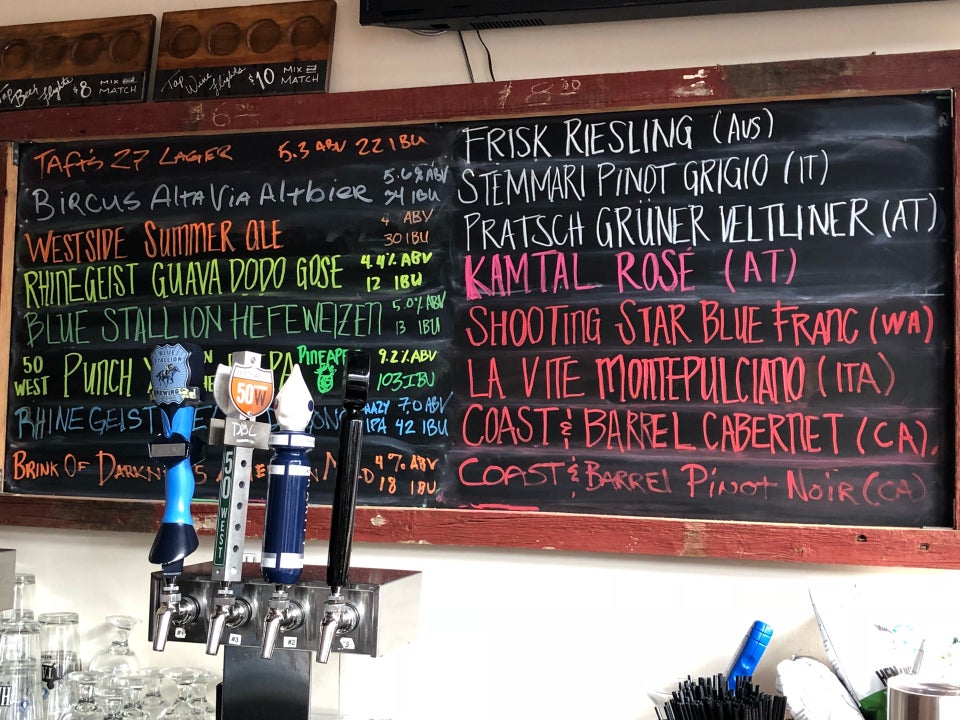 Top Beer flights $8 MIX & MATCH
Top Wine flights $10 MIX & MATCH
TAFT'S 27 LAGER 5.3 ABV 22 IBU
BIRCUS ALTAVIA ALTBIER 5.6% ABV
34 IBU
WESTSIDE SUMMER ALE 4. ABV
30 IBU
RHINEGEIST GUAVA DODO GOSE 4.4% ABV
12 IBU
BLUE STALLION HEFEWEIZEN 5.0% ABV
13 IBU
50 WEST PUNCH PINEAPP 9.2% ABV
103 IBU
RHINEGEIST HAZY IPA 7.0 ABV
42 IBU
BRINK OF DARK 4% ABV
18 IBU
FRISK RIESLING (AUS)
STEMMARI PINOT GRIGIO (IT)
PRATSCH GRÜNER VELTLINER (AT)
KAMTAL ROSÉ (AT)
SHOOTING STAR BLUE FRANC (WA)
LA VITE MONTEPULCIANO (ITA)
COAST & BARREL CABERNET (CA).
COAST & BARREL PINOT NOIR (CA)
BLUE STALLION
BREWING
50W
DBL
50 WEST
#3
#2